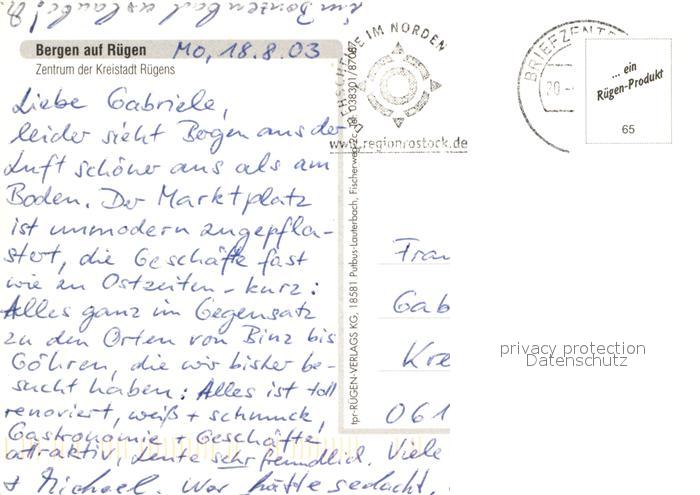 im Bonzenbad
Bergen auf Rügen Mo, 18.8.03
Zentrum der Kreistadt Rügens
Liebe Gabriele,
leider sieht Bergen aus der
Luft schöner aus als am
Boden. Der Marktplatz
ist unmodern zugepfla-
stert, die Geschäfte fast
wie zu Ostzeiten - kurz:
Alles ganz im Gegensatz
zu den Orten von Binz bis
Göhren, die wir bisher be-
sucht haben: Alles ist toll
renoviert, weiß + schmuck,
Gastronomie + Geschäfte
attraktiv, Leute sehr freundlich. Viele
+ Michael. Wer hätte gedacht,
tpr-RÜGEN-VERLAGS KG, 18581 Putbus-Lauterbach, Fischerweg 2c, Tel. 038301/87087
IM NORDEN
www.regionrostock.de
BRIEFZENT
20.
... ein
Rügen-Produkt
65
Frau
Gab
Kre
061
privacy protection
Datenschutz